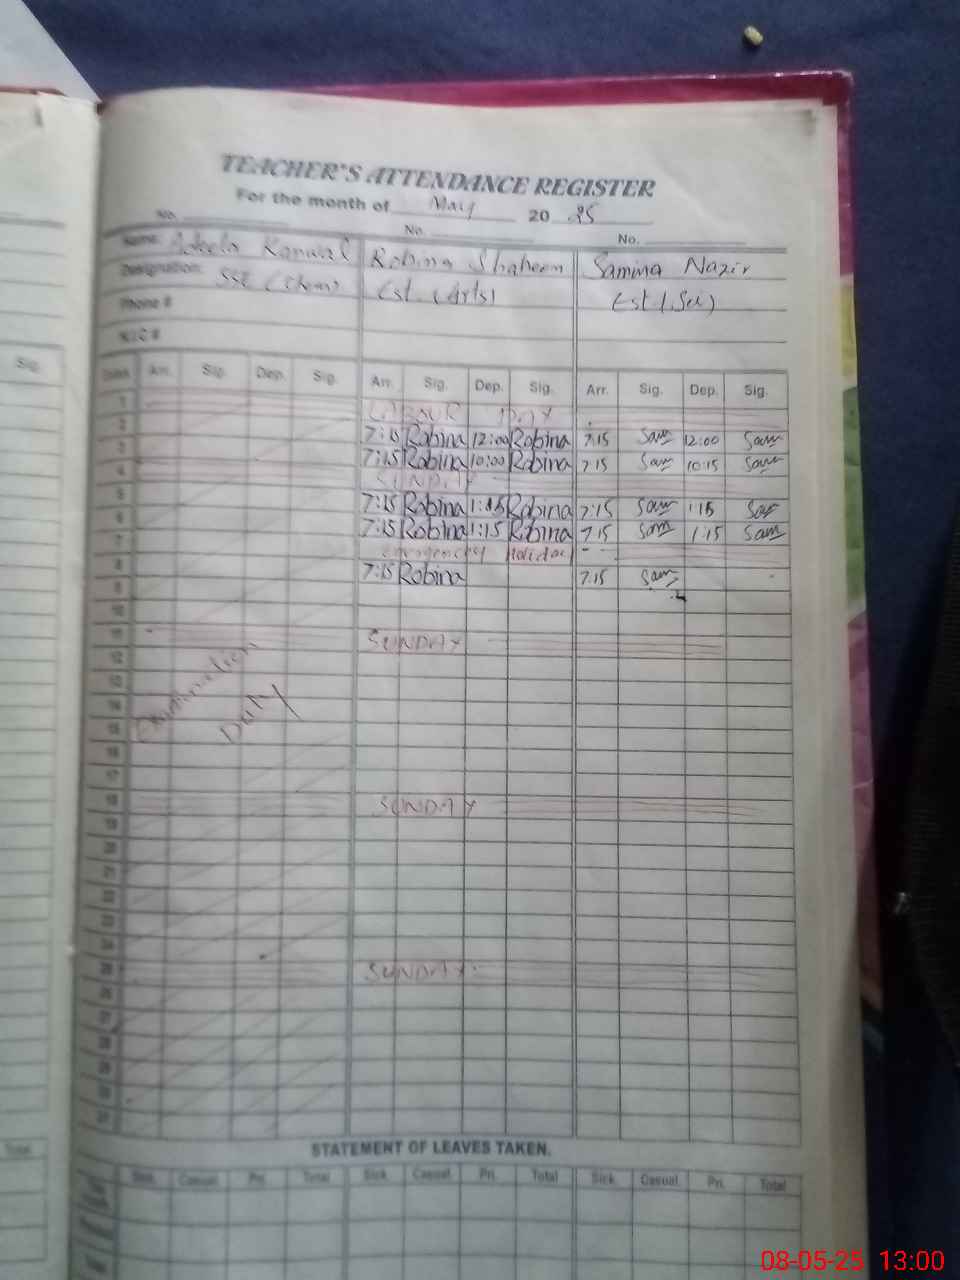 TEACHER'S ATTENDANCE REGISTER
For the month of May 2025
No. No. No.
Name: Adeela Kanwal Robina Shaheen Samina Nazir
Designation: SSE (Chem) Est (Arts) Est (Sci)
Phone #
N.I.C #
Sig.
Dates Arr. Sig. Dep. Sig. Arr. Sig. Dep. Sig. Arr. Sig. Dep. Sig.
1 LABOUR DAY
2 7:15 Robina 12:00 Robina 7:15 Sam 12:00 Sam
3 7:15 Robina 10:00 Robina 7:15 Sam 10:15 Sam
4 SUNDAY
5 7:15 Robina 1:15 Robina 7:15 Sam 1:15 Sam
6 7:15 Robina 1:15 Robina 7:15 Sam 1:15 Sam
7 holiday
8 7:15 Robina 7:15 Sam
9
10
11 SUNDAY
12
13
14
15
Examination Duty
16
17
18 SUNDAY
19
20
21
22
23
24
25 SUNDAY
26
27
28
29
30
31
STATEMENT OF LEAVES TAKEN.
Total
Sick. Casual. Pri. Total Sick. Casual. Pri. Total Sick. Casual. Pri. Total
08-05-25 13:00